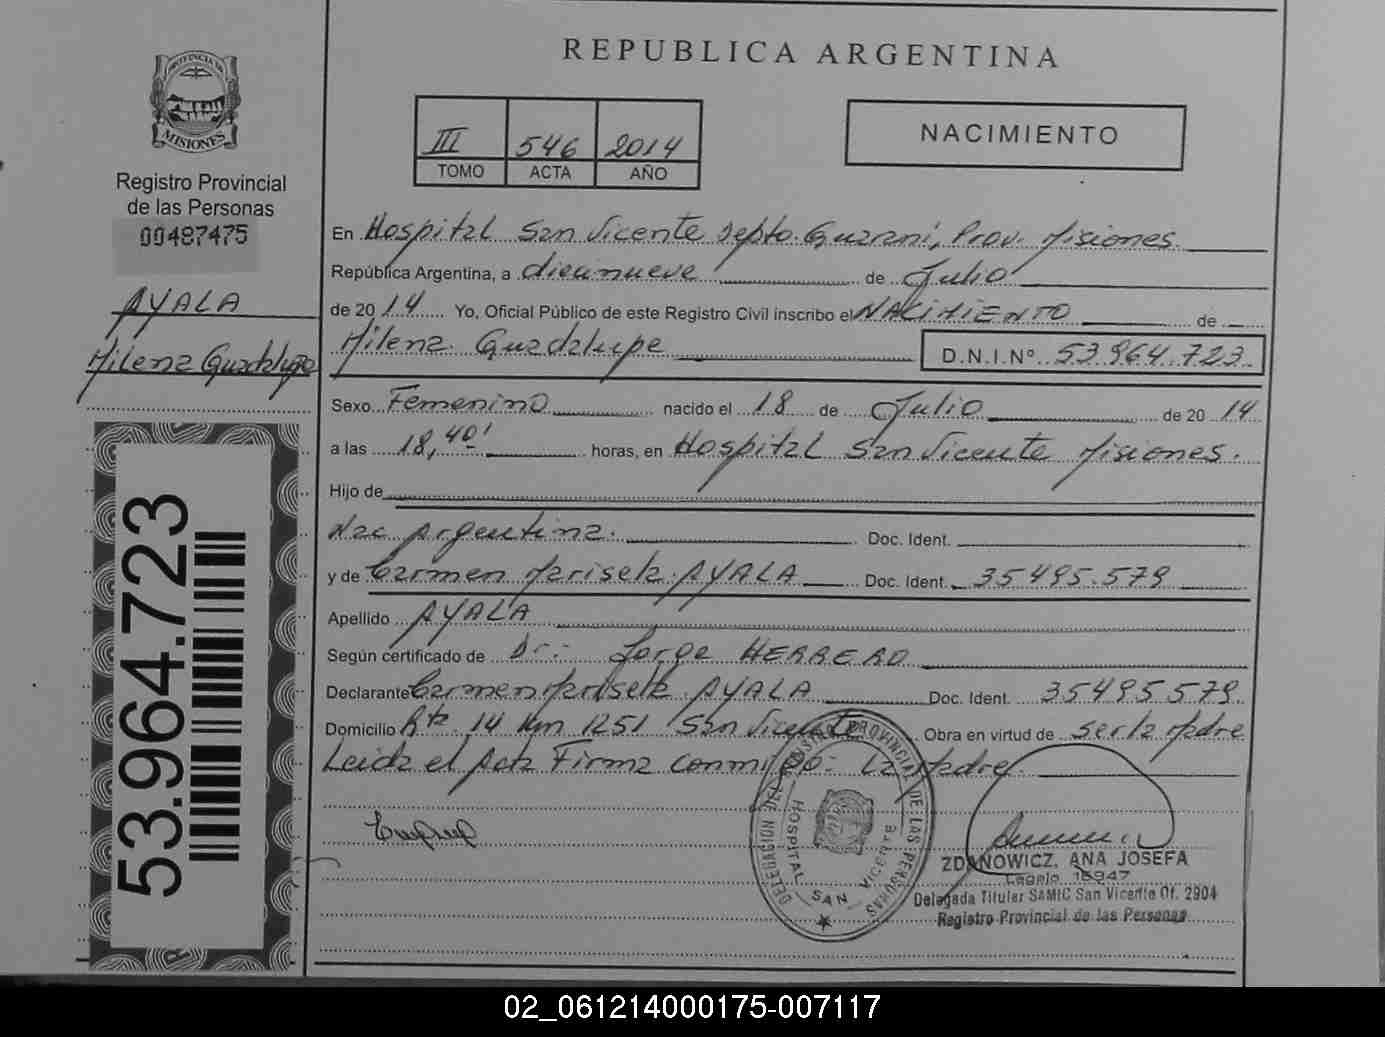 REPUBLICA ARGENTINA
PROVINCIA DE
MISIONES
Registro Provincial
de las Personas
00487475
AYALA
Milena Guadalupe
53.964.723
III 546 2014
TOMO ACTA AÑO
NACIMIENTO
En Hospital San Vicente Depto. Guarani, Prov. Misiones
República Argentina, a diecinueve de Julio
de 2014 Yo, Oficial Público de este Registro Civil inscribo el NACIMIENTO de
Milena Guadalupe D.N.I.Nº 53.964.723
Sexo Femenino nacido el 18 de Julio de 2014
a las 18,40' horas, en Hospital San Vicente Misiones.
Hijo de
Nac Argentina. Doc. Ident.
y de Carmen Marisela AYALA Doc. Ident. 35495.579
Apellido AYALA
Según certificado de Dr.: Jorge HERRERO
Declarante Carmen Marisela AYALA Doc. Ident. 35495579
Domicilio Rta. 14 Km 1251 San Vicente Obra en virtud de ser la Madre
Leida el Acta Firma conmigo: La Madre
DELEGACION DEL REGISTRO PROVINCIAL DE LAS PERSONAS
HOSPITAL SAN VICENTE
ZDANOWICZ, ANA JOSEFA
Legajo 16947
Delegada Titular SAMIC San Vicente Of. 2904
Registro Provincial de las Personas
02_061214000175-007117